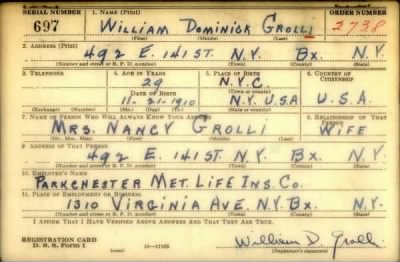 SERIAL NUMBER 1. NAME (Print) ORDER NUMBER
697 WILLIAM DOMINICK GROLLI 2738
(First) (Middle) (Last)
2. ADDRESS (Print)
492 E. 141 ST. N.Y. BX. N.Y.
(Number and street or R. F. D. number) (Town) (County) (State)
3. TELEPHONE 4. AGE IN YEARS 5. PLACE OF BIRTH 6. COUNTRY OF CITIZENSHIP
29 N.Y.C.
DATE OF BIRTH (Town or county)
11-21-1910 N.Y. U.S.A U.S.A.
(Exchange) (Number) (Mo.) (Day) (Yr.) (State or country)
7. NAME OF PERSON WHO WILL ALWAYS KNOW YOUR ADDRESS 8. RELATIONSHIP OF THAT PERSON
MRS. NANCY GROLLI WIFE
(Mr., Mrs., Miss) (First) (Middle) (Last)
9. ADDRESS OF THAT PERSON
492 E. 141 ST. N.Y. BX. N.Y.
(Number and street or R. F. D. number) (Town) (County) (State)
10. EMPLOYER'S NAME
PARKCHESTER MET. LIFE INS. CO.
11. PLACE OF EMPLOYMENT OR BUSINESS
1310 VIRGINIA AVE. N.Y. BX. N.Y.
(Number and street or R. F. D. number) (Town) (County) (State)
I AFFIRM THAT I HAVE VERIFIED ABOVE ANSWERS AND THAT THEY ARE TRUE.
REGISTRATION CARD
D. S. S. Form 1 16—17105 William D. Grolli
(Registrant's signature)